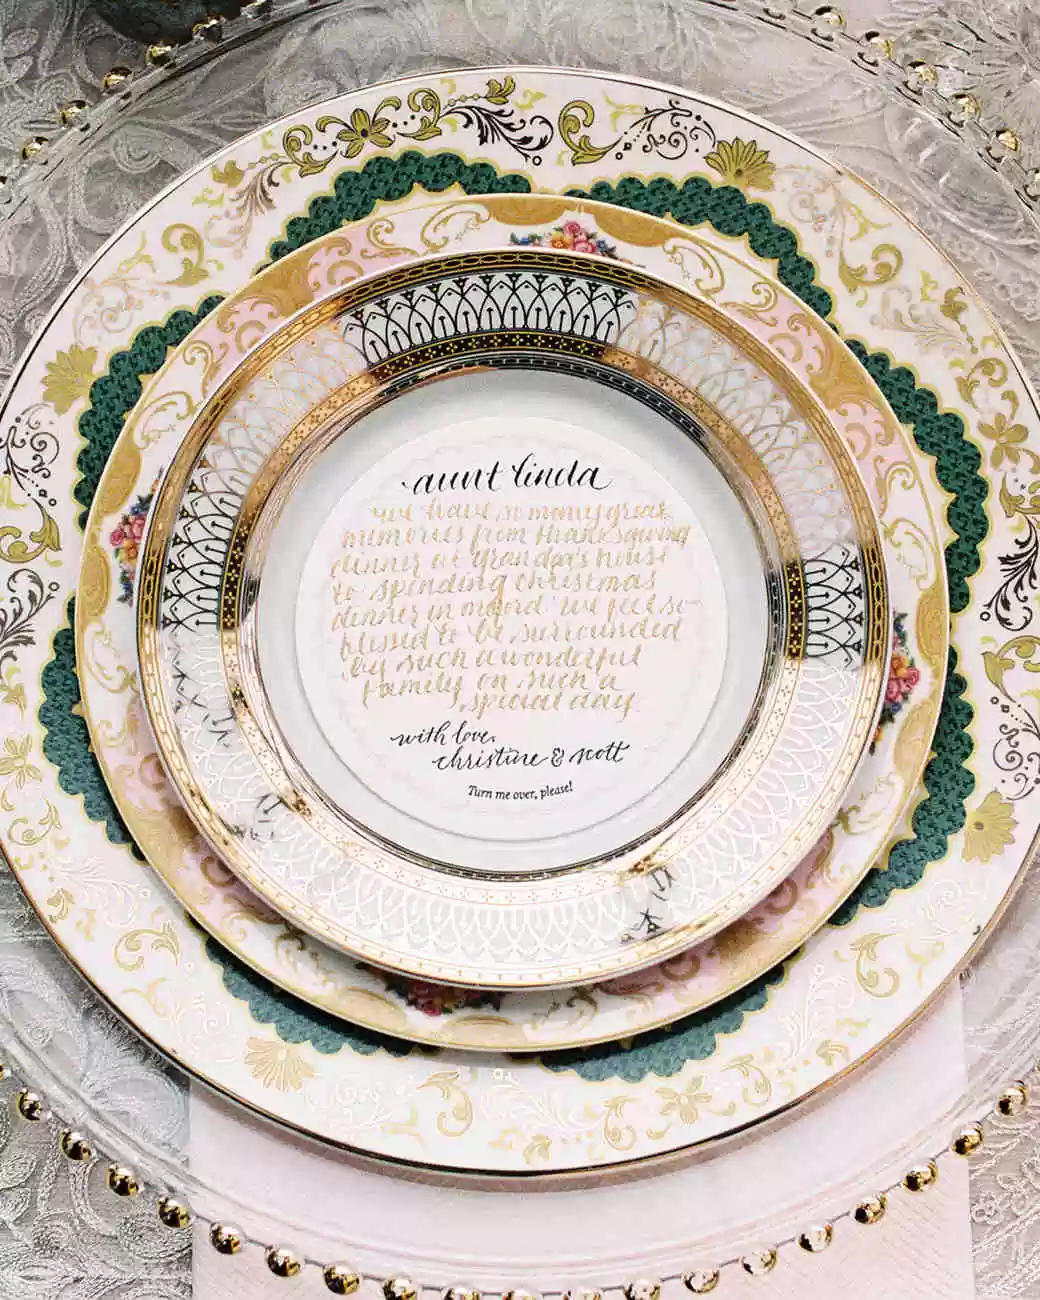 aunt linda
we have so many great
memories from thanksgiving
dinner at grandpa's house
to spending christmas
dinner in we feel so
blessed to be surrounded
by such a wonderful
family on such a
special day.
with love,
christine & scott
Turn me over, please!